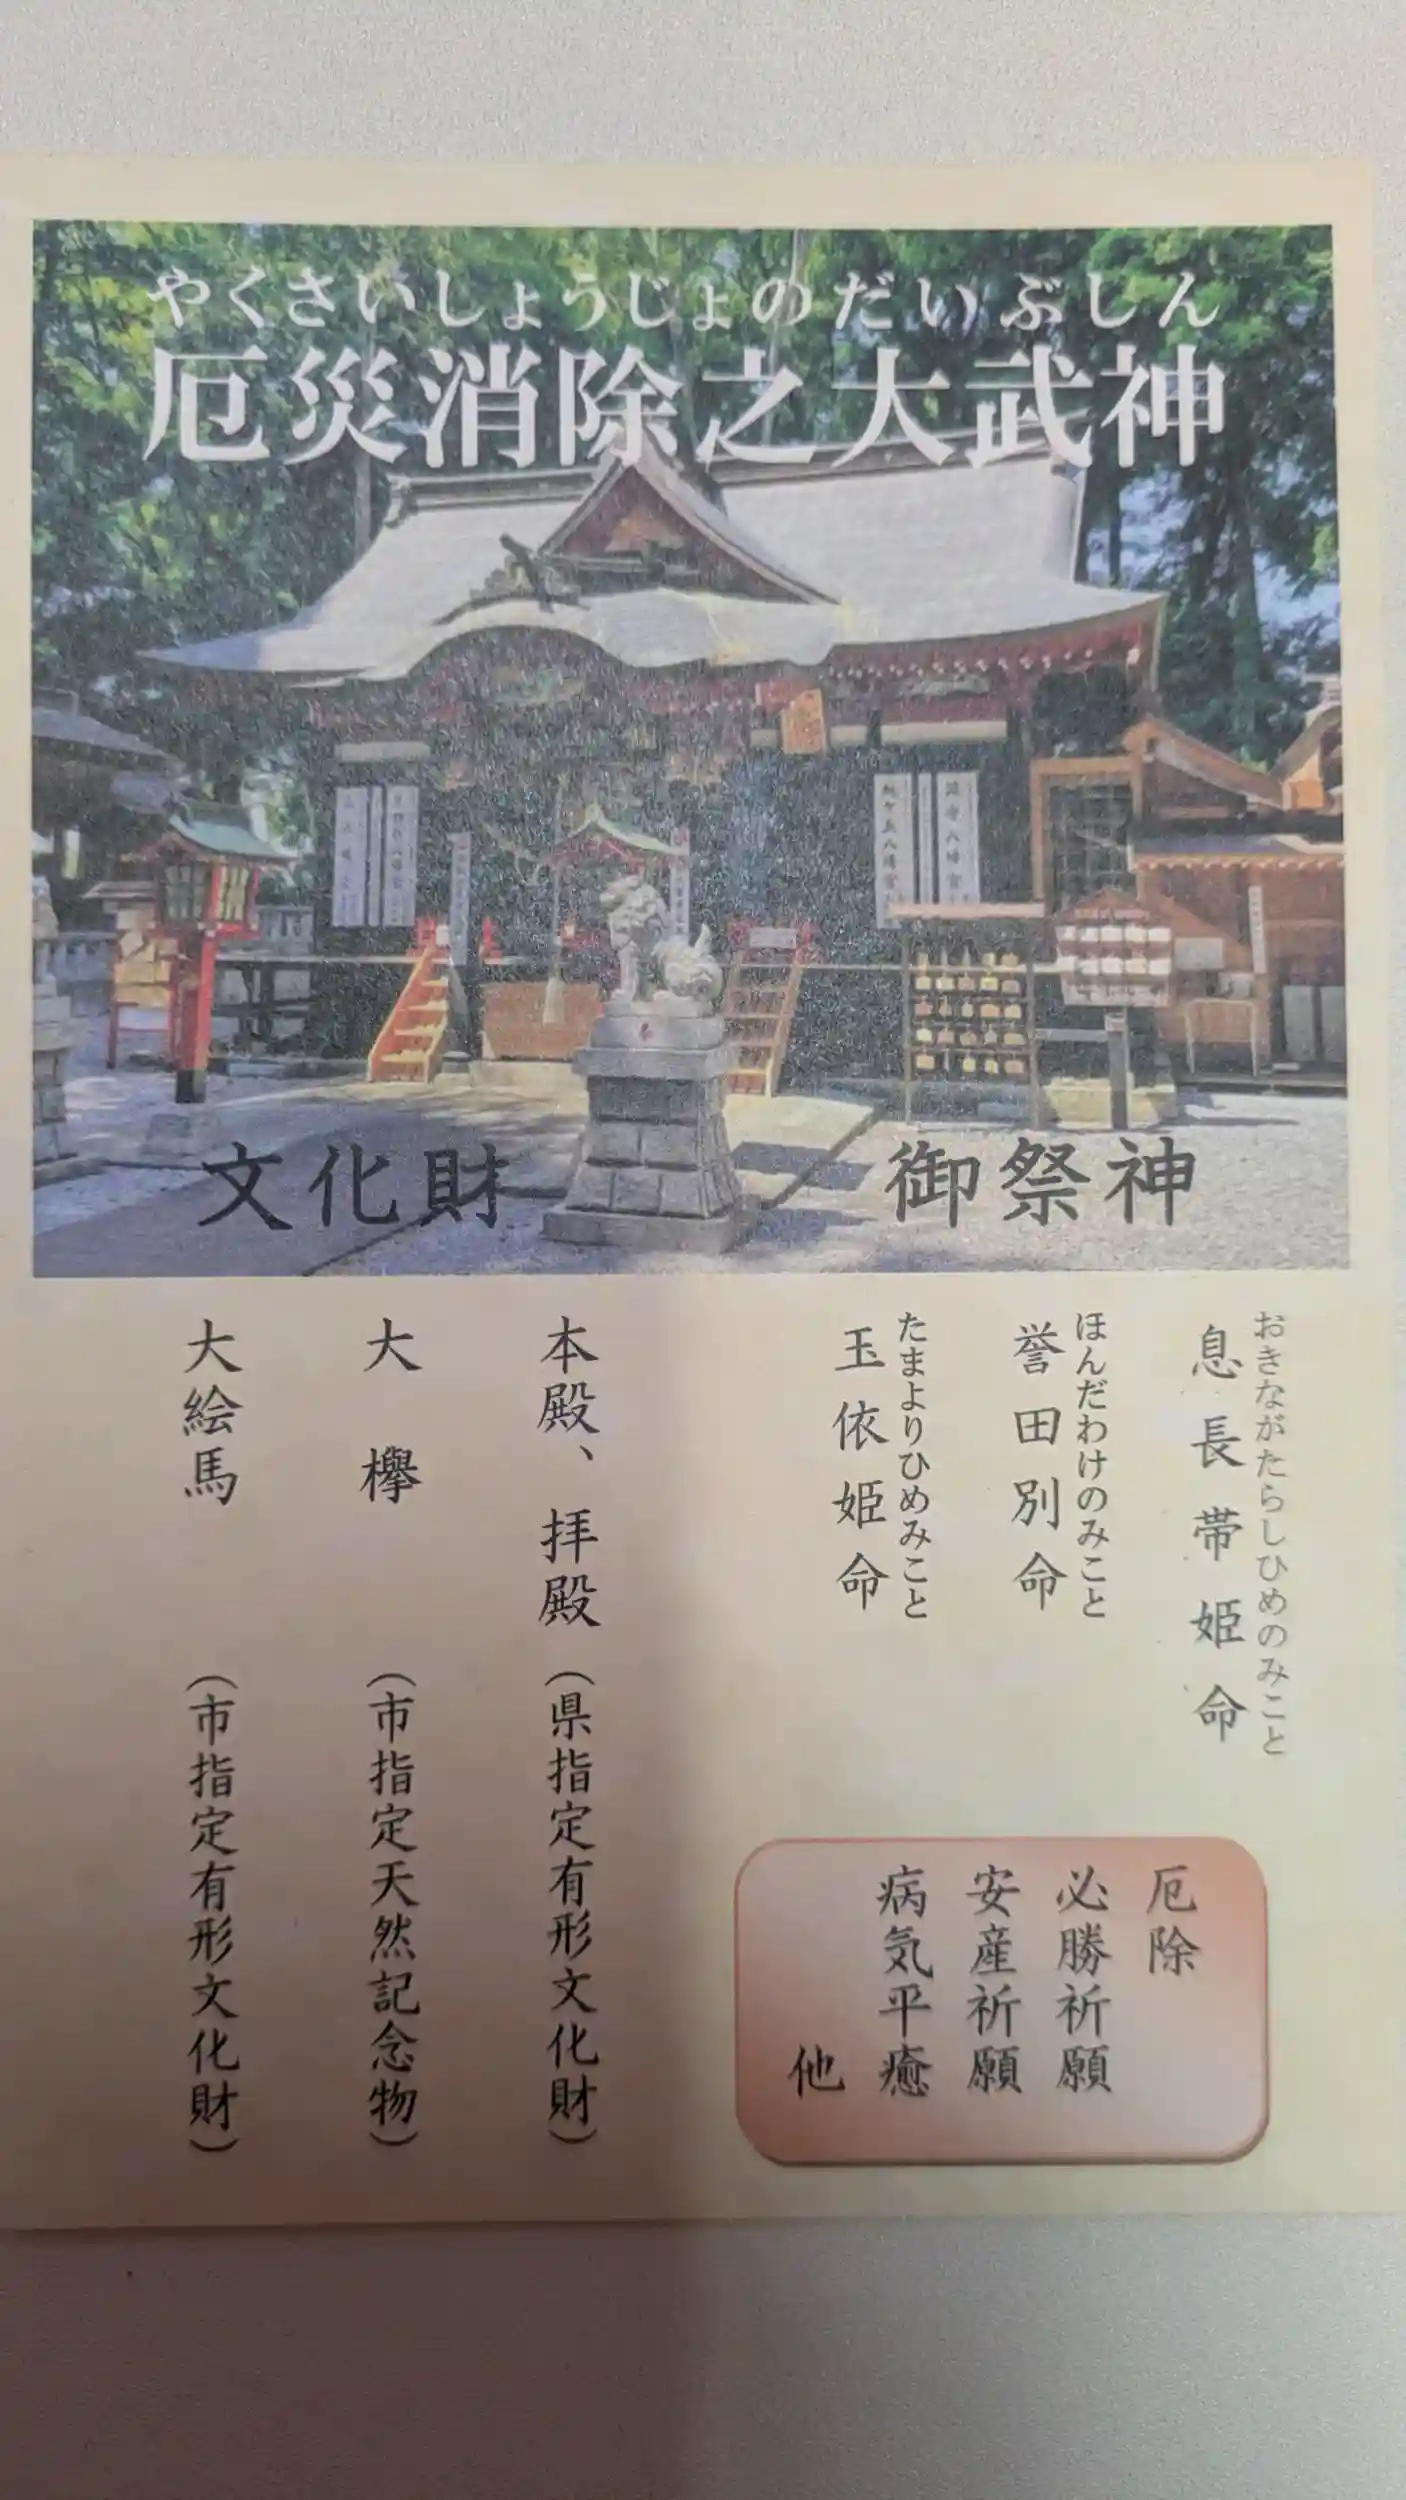 やくさいしょうじょのだいぶしん
厄災消除之大武神
御祭神
おきながたらしひめのみこと
息長帯姫命
ほんだわけのみこと
誉田別命
たまよりひめみこと
玉依姫命
厄除
必勝祈願
安産祈願
病気平癒
他
文化財
本殿、拝殿（県指定有形文化財）
大欅（市指定天然記念物）
大絵馬（市指定有形文化財）